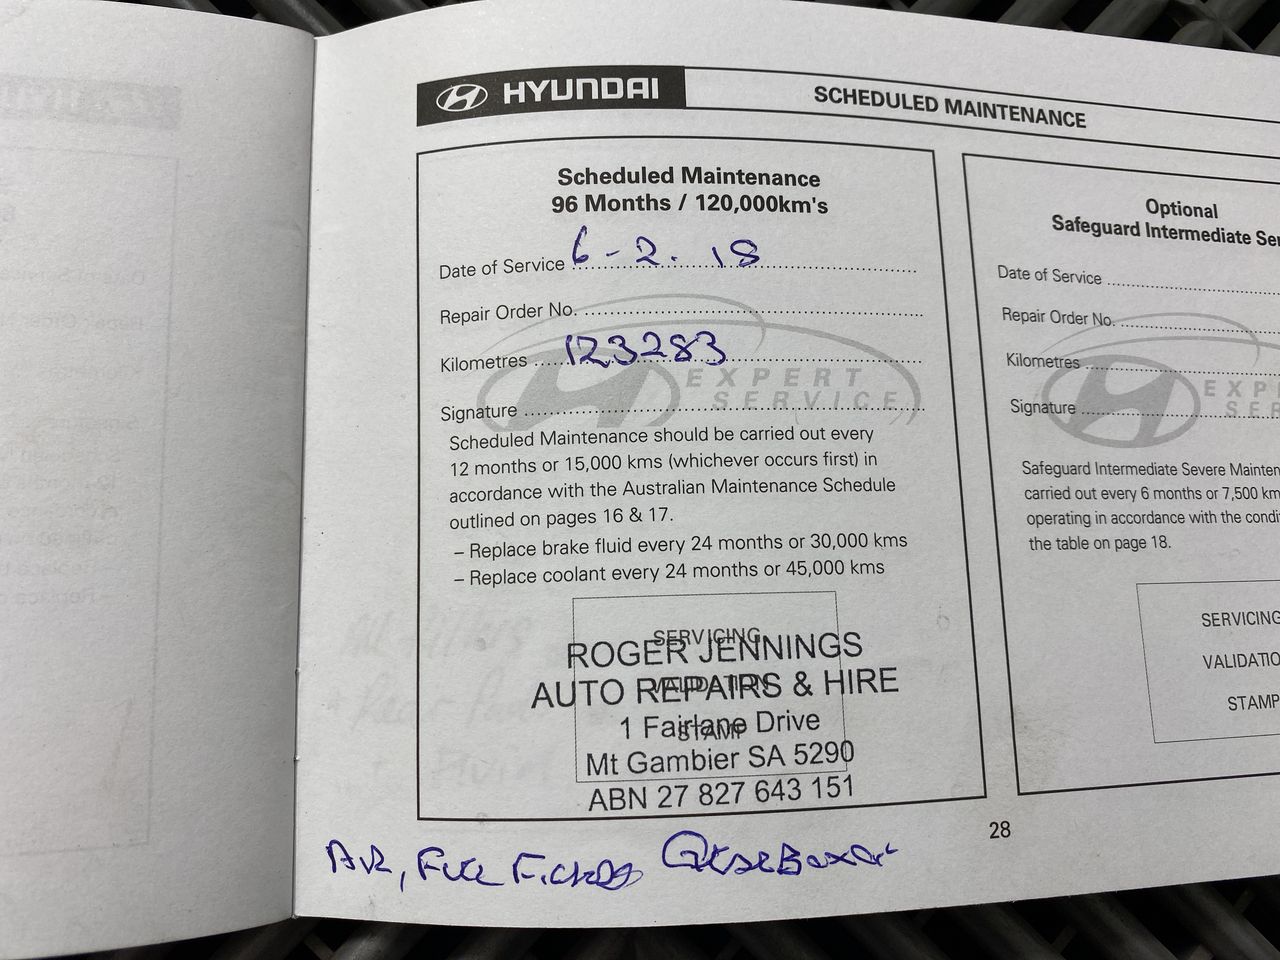 HYUNDAI
SCHEDULED MAINTENANCE
Scheduled Maintenance
96 Months / 120,000km's
Date of Service 6-2.18
Repair Order No.
Kilometres 123283
Signature
EXPERT
SERVICE
Scheduled Maintenance should be carried out every
12 months or 15,000 kms (whichever occurs first) in
accordance with the Australian Maintenance Schedule
outlined on pages 16 & 17.
– Replace brake fluid every 24 months or 30,000 kms
– Replace coolant every 24 months or 45,000 kms
SERVICING
VALIDATION
STAMP
ROGER JENNINGS
AUTO REPAIRS & HIRE
1 Fairlane Drive
Mt Gambier SA 5290
ABN 27 827 643 151
Air, Fuel Filters
Optional
Safeguard Intermediate Se
Date of Service
Repair Order No.
Kilometres
Signature
EXP
SER
Safeguard Intermediate Severe Mainten
carried out every 6 months or 7,500 km
operating in accordance with the condi
the table on page 18.
SERVICING
VALIDATIO
STAMP
28